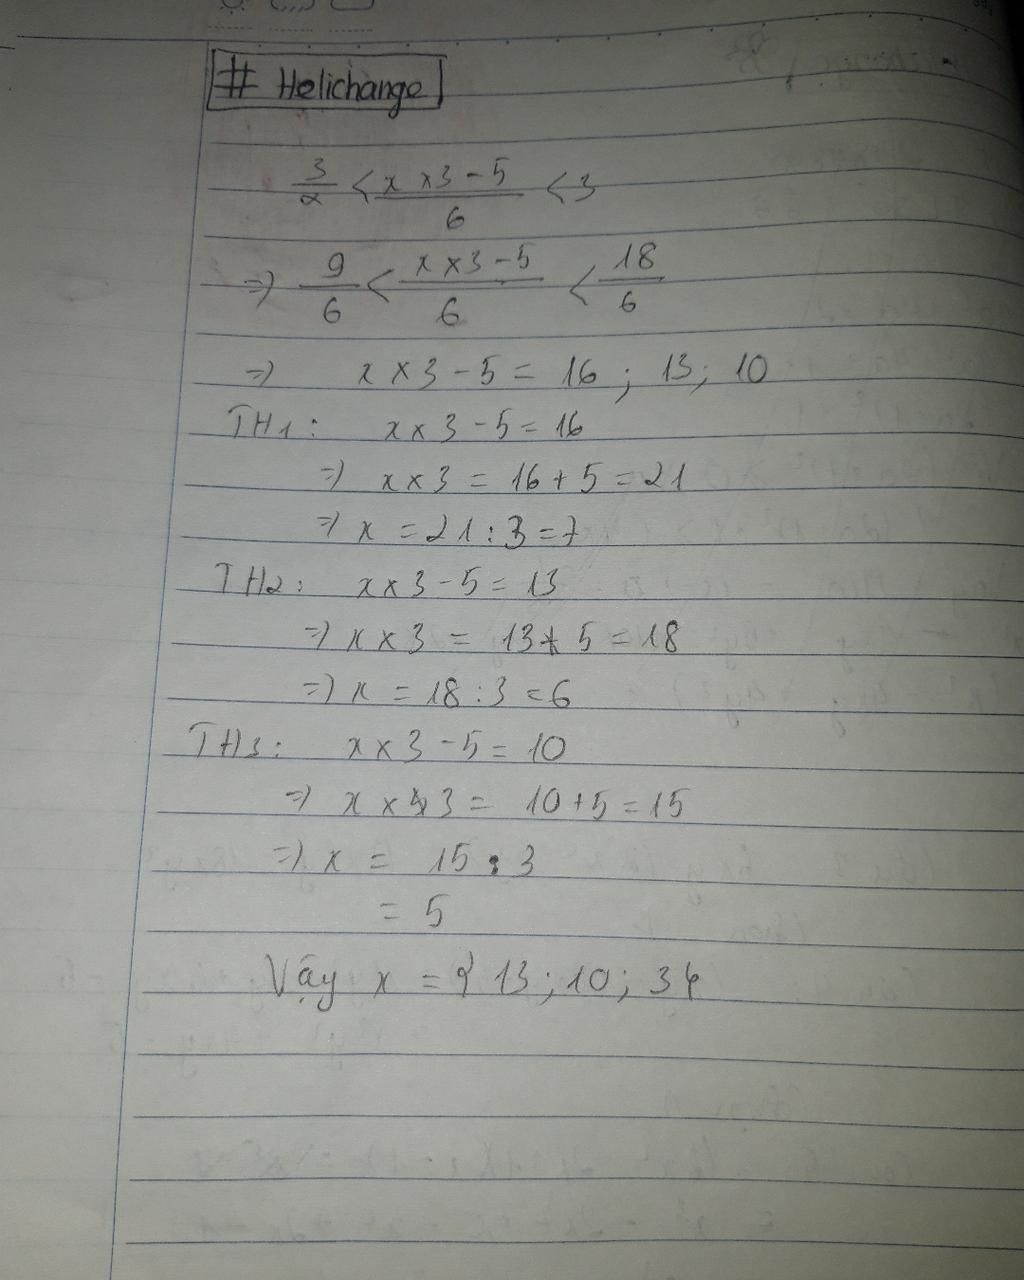 # Helichange
3/2 < x × 3 - 5/6 < 3
=) 9/6 < x × 3 - 5/6 < 18/6
=) x × 3 - 5 = 16 ; 13 ; 10
TH1 : x × 3 - 5 = 16
=) x × 3 = 16 + 5 = 21
=) x = 21 : 3 = 7
TH2 : x × 3 - 5 = 13
=) x × 3 = 13 + 5 = 18
=) x = 18 : 3 = 6
TH3 : x × 3 - 5 = 10
=) x × 3 = 10 + 5 = 15
=) x = 15 : 3
= 5
Vậy x = { 13 ; 10 ; 3}